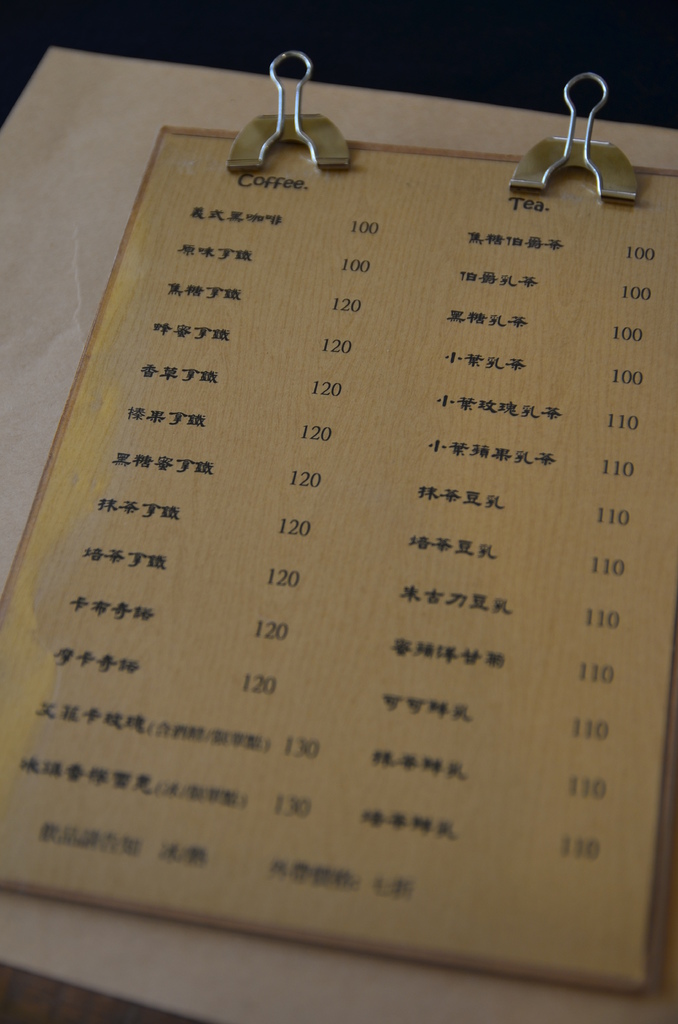 Coffee.
義式黑咖啡 100
原味拿鐵 100
焦糖拿鐵 120
蜂蜜拿鐵 120
香草拿鐵 120
榛果拿鐵 120
黑糖蜜拿鐵 120
抹茶拿鐵 120
焙茶拿鐵 120
卡布奇諾 120
摩卡奇諾 120
艾菲卡玫瑰(含酒精/限單點) 130
冰滴香檸雪克(冰/限單點) 130
飲品請告知 冰/熱 外帶價格: 七折
Tea.
焦糖伯爵茶 100
伯爵乳茶 100
黑糖乳茶 100
小葉乳茶 100
小葉玫瑰乳茶 110
小葉蘋果乳茶 110
抹茶豆乳 110
焙茶豆乳 110
朱古力豆乳 110
蜜蘋洋甘菊 110
可可鮮乳 110
抹茶鮮乳 110
焙茶鮮乳 110